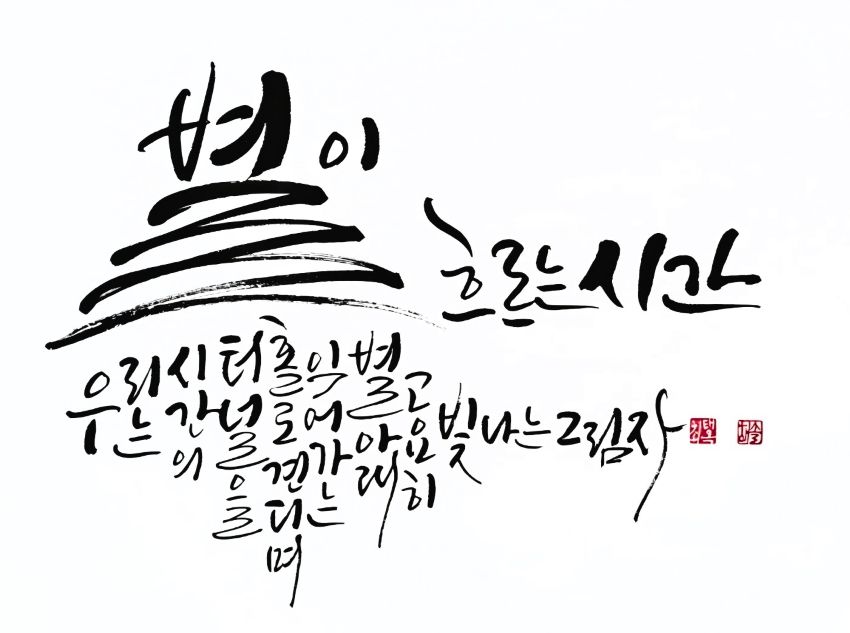 별이
흐르는 시간
우리는
시간의
터널을
홀로 견디며
익어가는
별 아래
고요히
빛나는 그림자